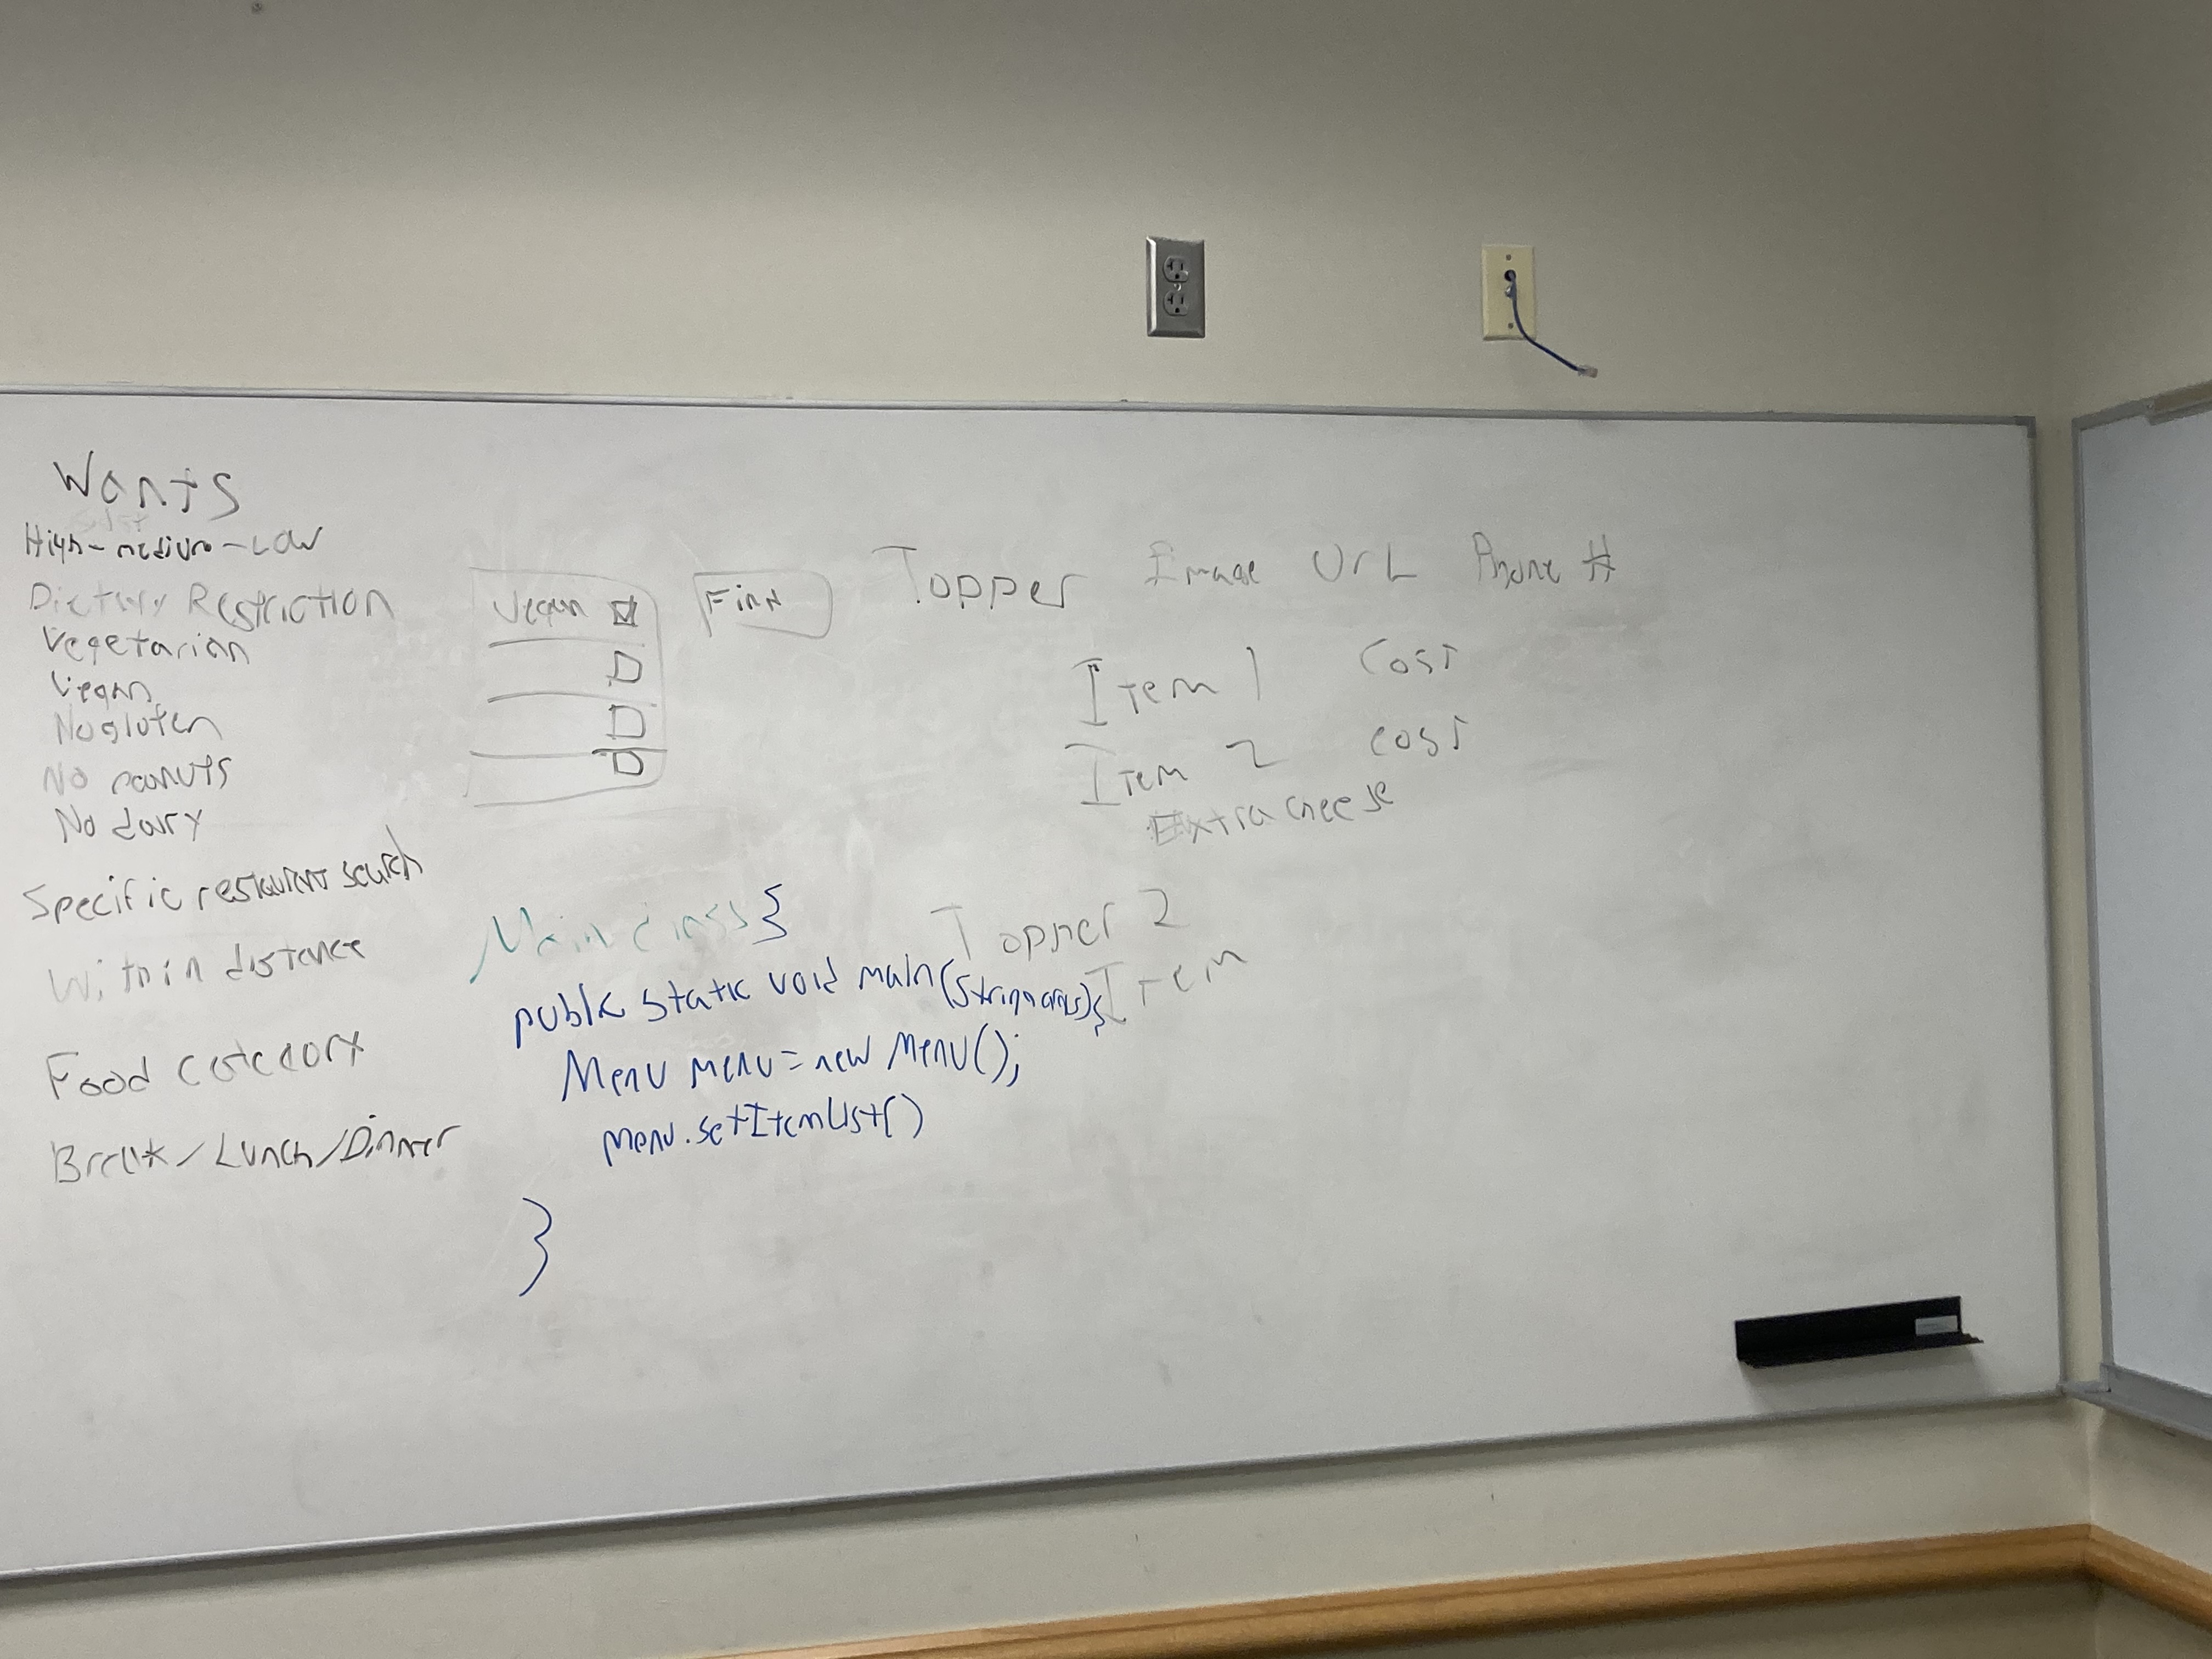 Wants
High-medium-Low
Dietary Restriction
Vegetarian
Vegan
No gluten
No peanuts
No dairy
Specific restaurant search
Within distance
Food category
Break/Lunch/Dinner
Vegan
Find
Topper Image UrL Phone #
Item 1 Cost
Item 2 cost
Extra cheese
Topper 2
Item
Main class {
public static void main(String args){
Menu menu = new Menu();
menu.setItemList()
}